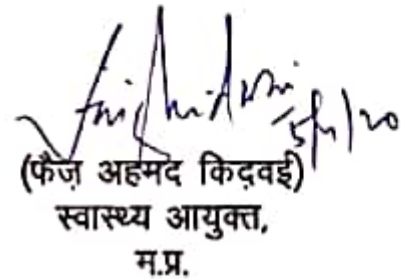 (फैज़ अहमद किदवई)
स्वास्थ्य आयुक्त,
म.प्र.